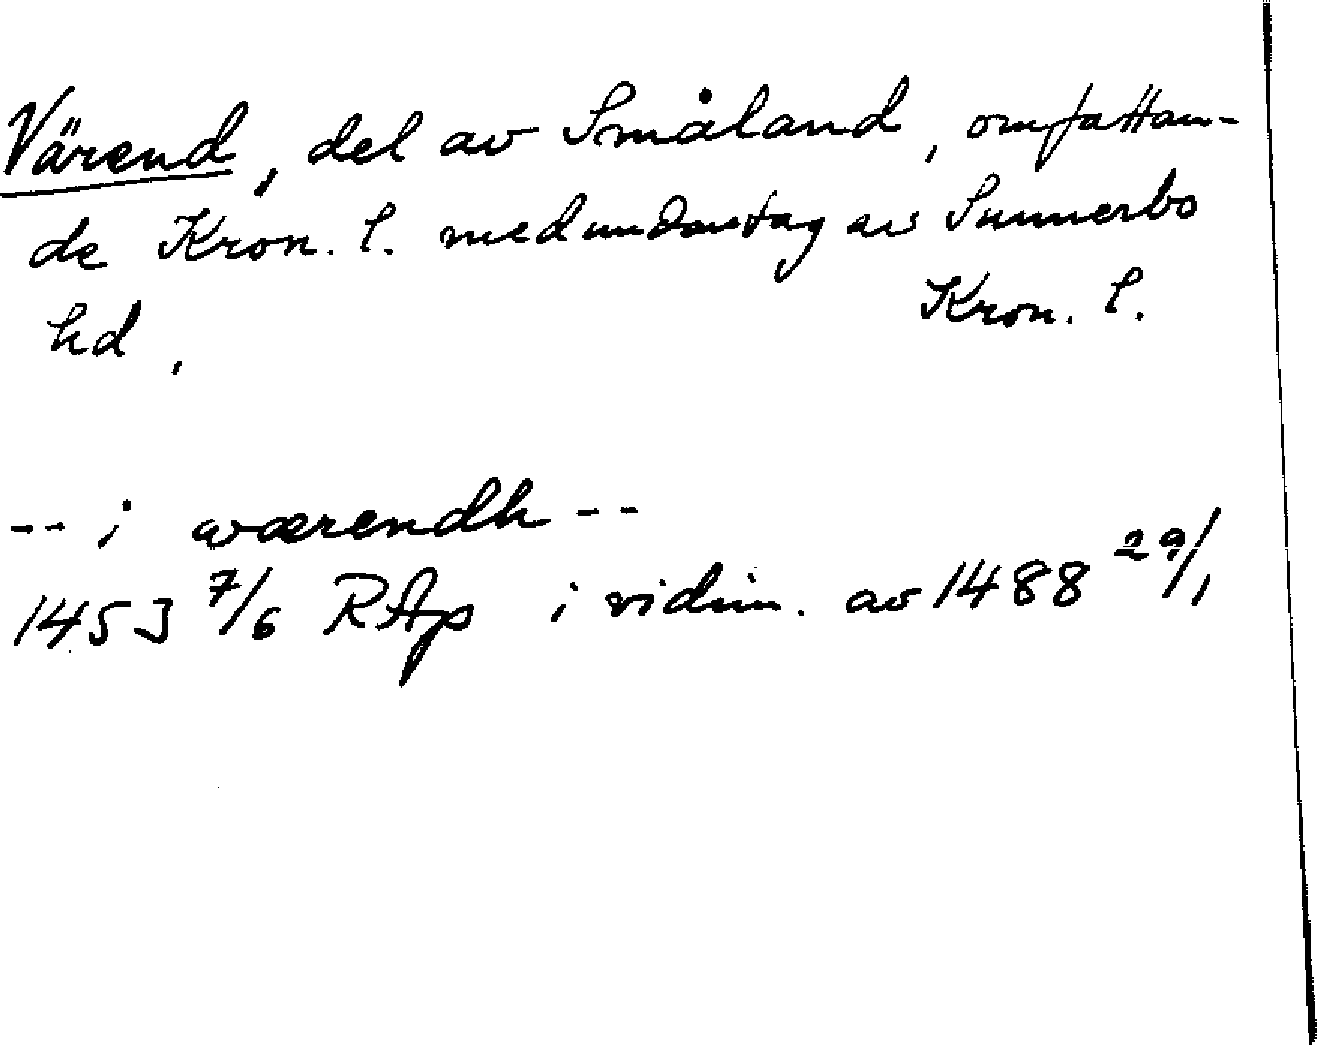 Värend, del av Småland, omfattan-
de Kron. l. med undantag av Sunnerbo
hd.
Kron. l.
-- i wærendh --
1453 7/6 RAp i vidim. av 1488 29/1